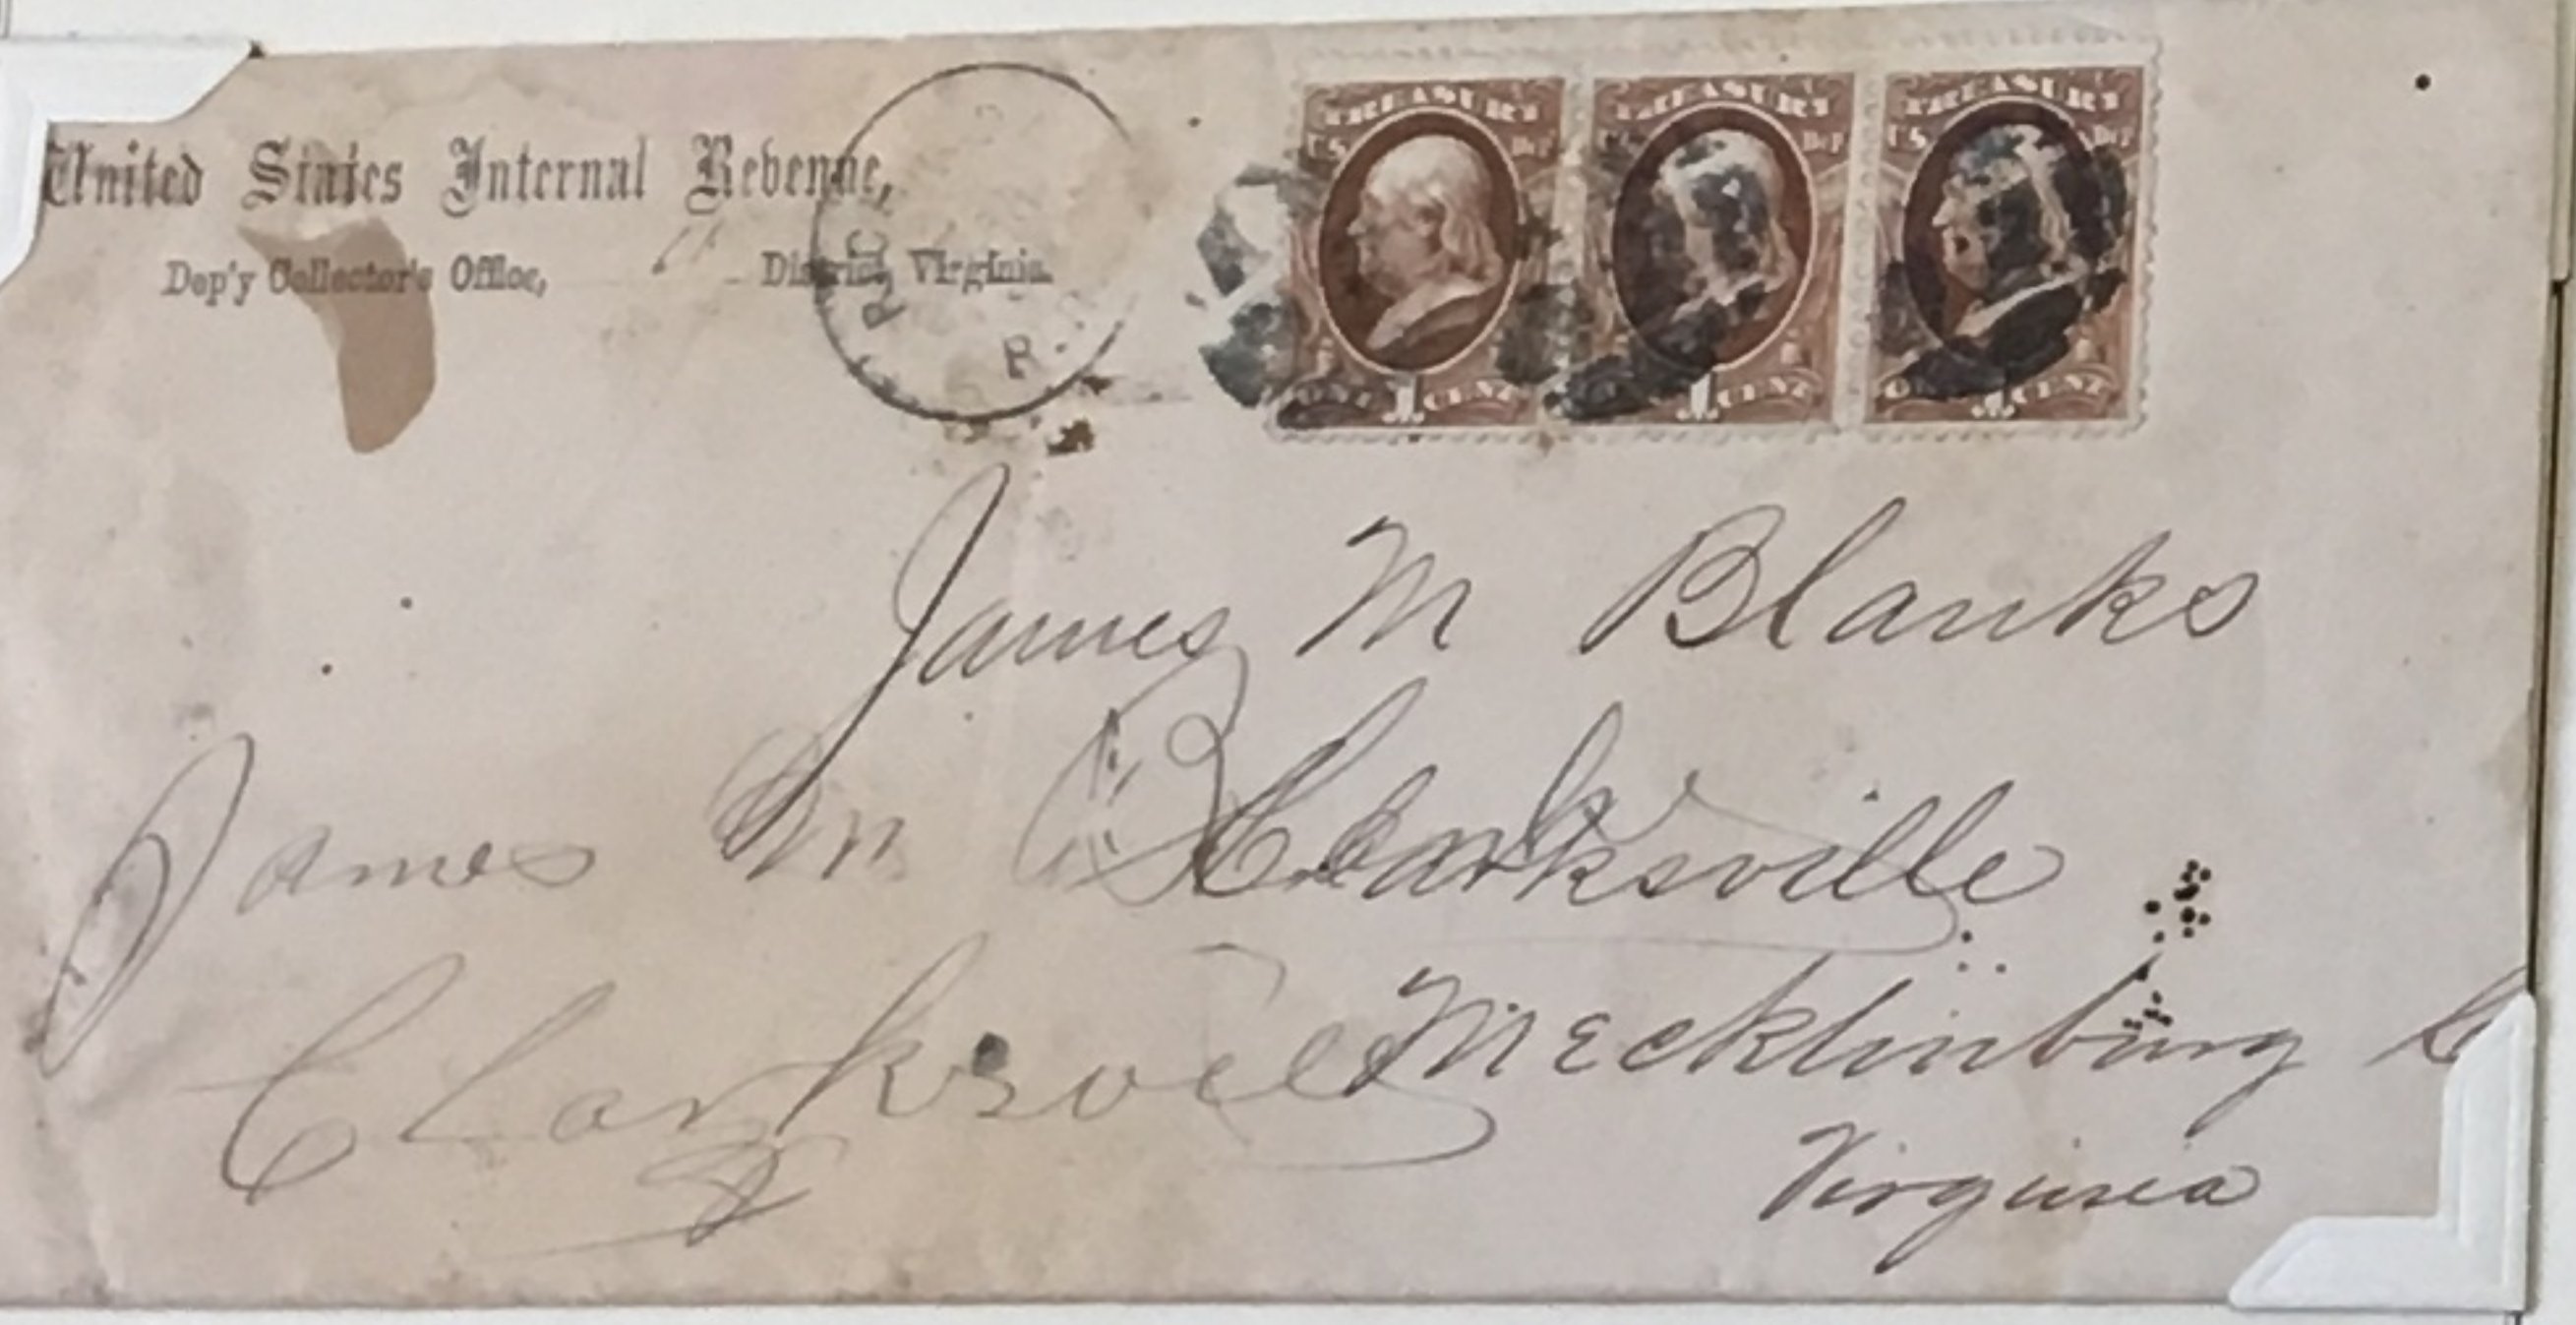 United States Internal Revenue,
Dep'y Collector's Office, District, Virginia.
RIC
R.
TREASURY
U.S. Dep
ONE 1 CENT
TREASURY
U.S. Dep
1 CENT
TREASURY
U.S. Dep
1 CENT
James M Blanks
Clarksville
Mecklinburg
Virginia
James M
Clarksvill